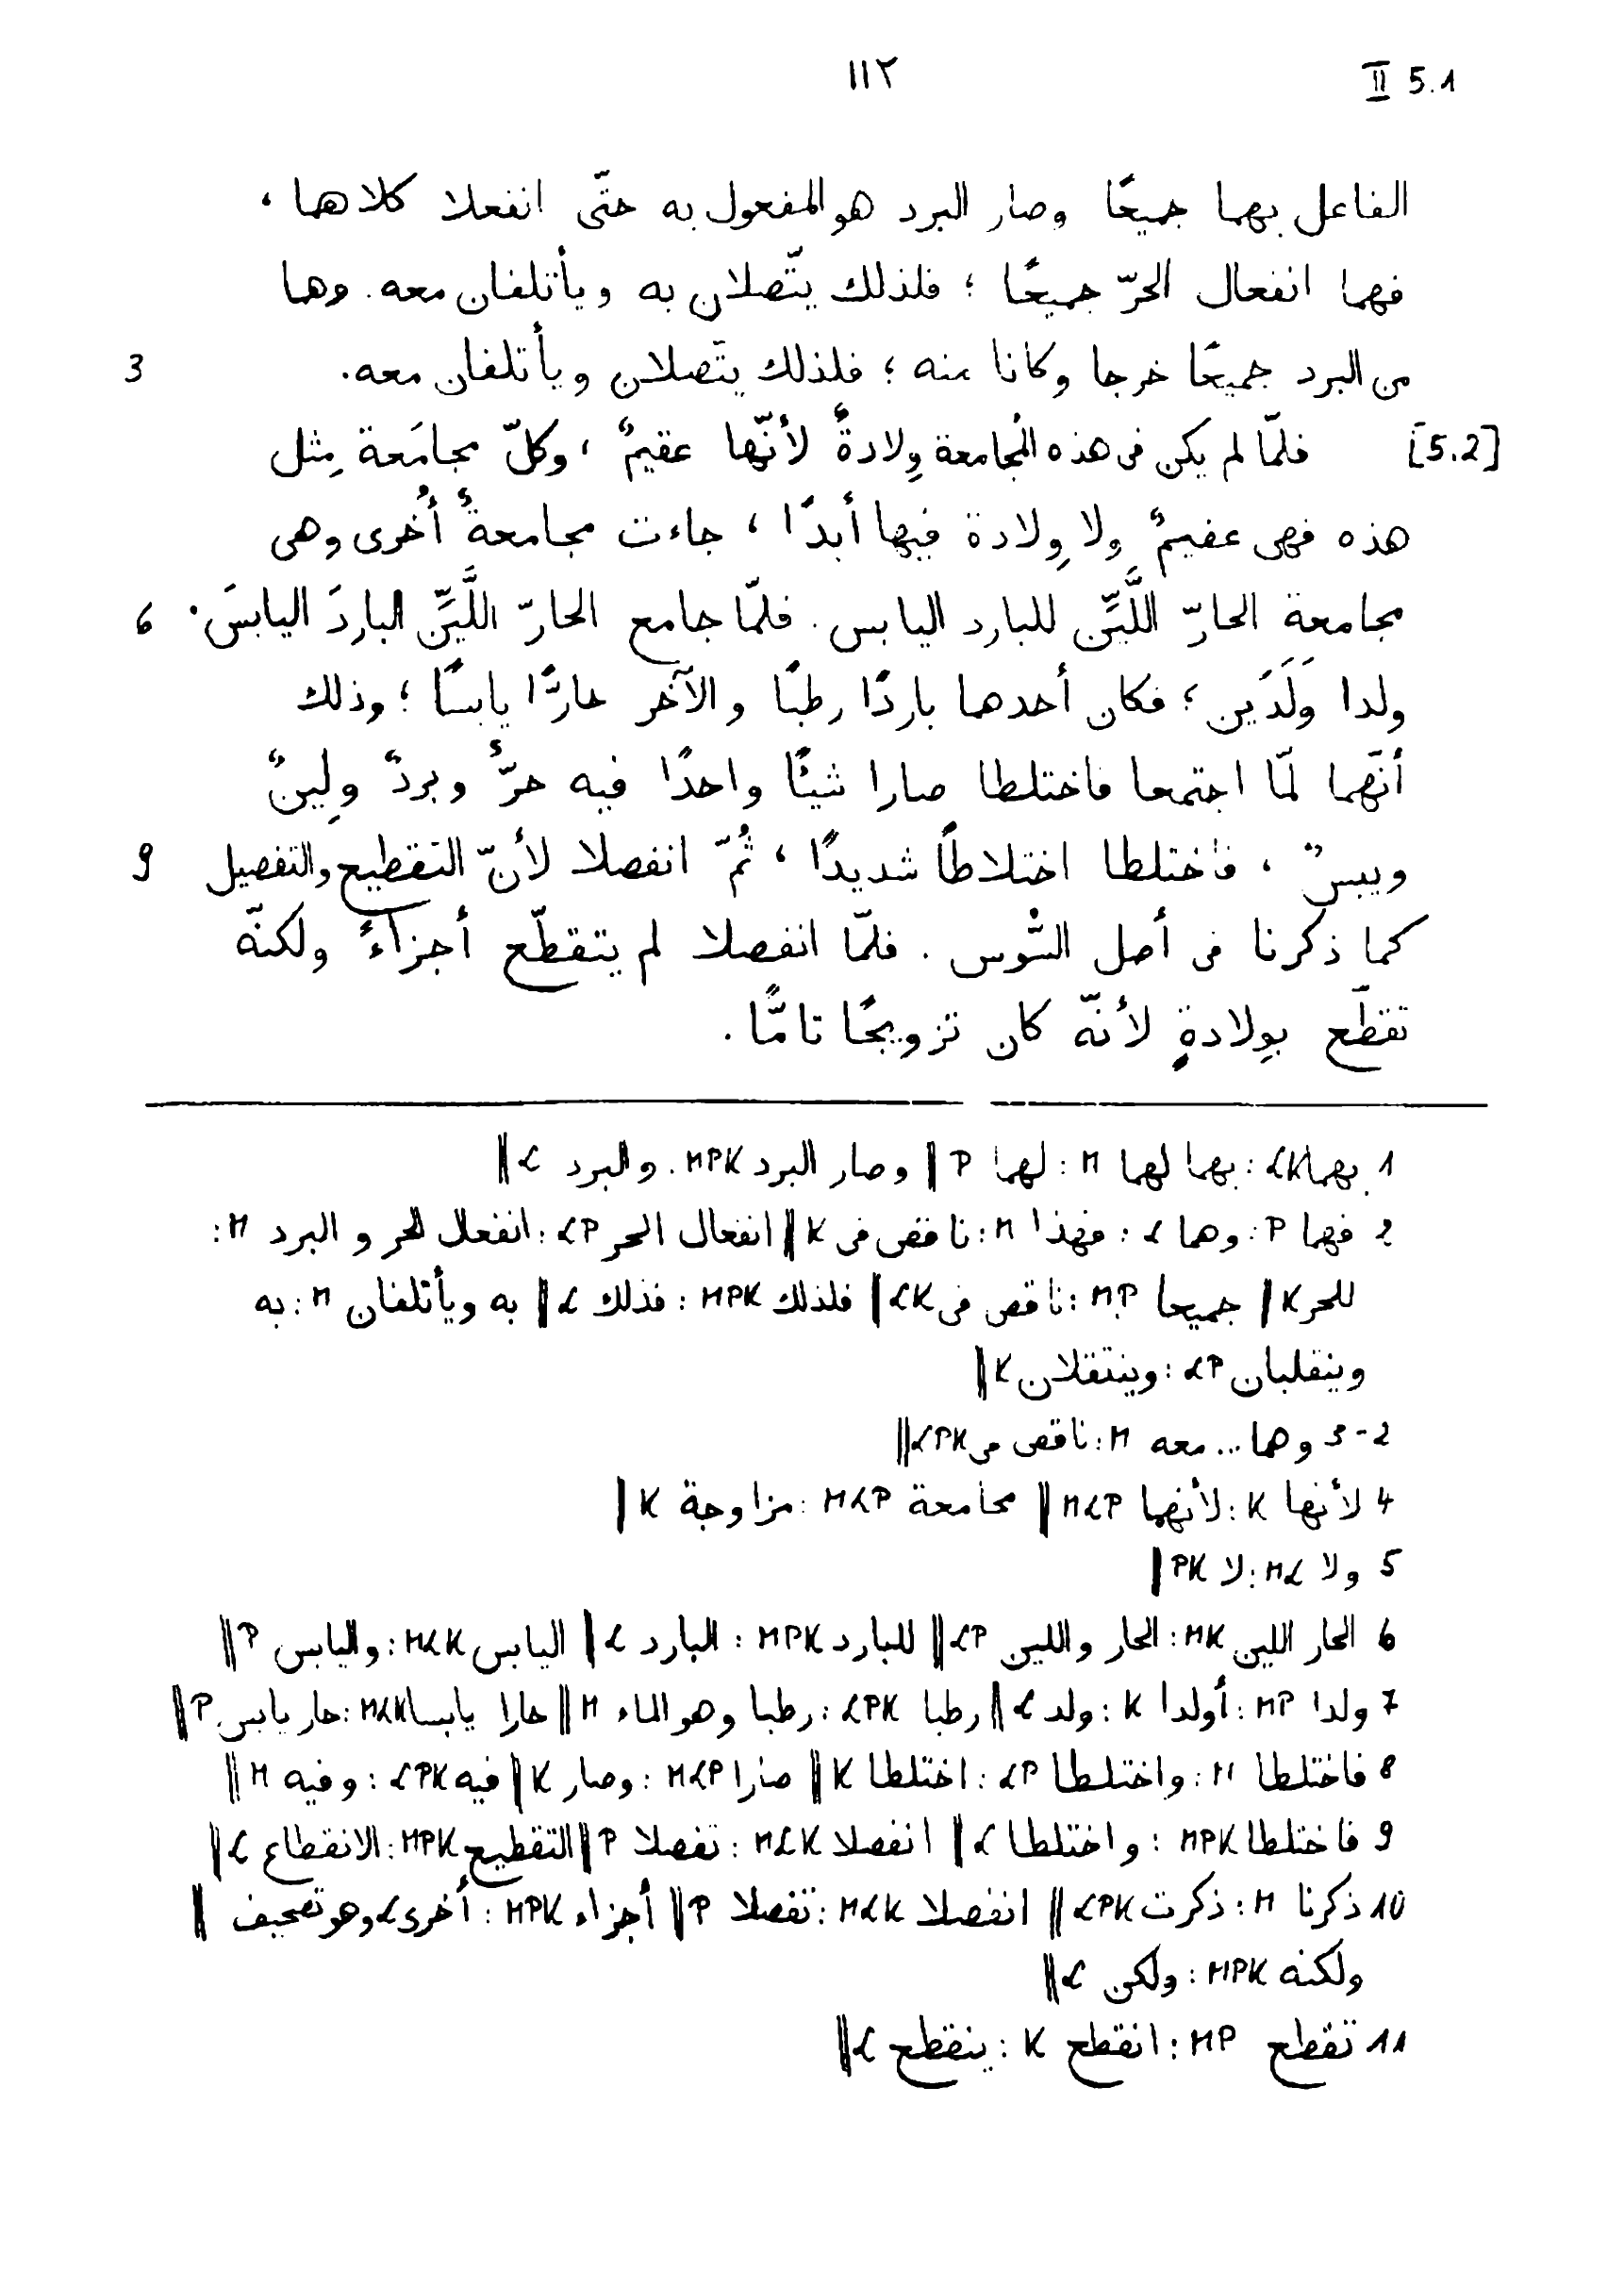 II 5.1
١١٢
الفاعل بهما جميعًا وصار البرد هو المفعول به حتّى انفعلا كلاهما،
فهما انفعال الحرّ جميعًا؛ فلذلك يتّصلان به ويأتلفان معه. وهما
من البرد جميعًا خرجا وكانا منه؛ فلذلك يتّصلان ويأتلفان معه. 3
[5.2] فلمّا لم يكن فى هذه المُجامعة وِلادةٌ لأنّها عقيمٌ، وكلّ مجامَعة مِثل
هذه فهى عقيمٌ ولا وِلادة فيها أبدًا، جاءت مجامعةٌ أُخرى وهى
مجامعة الحارّ اللَّيِّن للبارد اليابس. فلمّا جامع الحارّ اللَّيِّن الباردَ اليابسَ. 6
ولدا وَلَدَين؛ فكان أحدهما باردًا رطبًا والآخر حارًّا يابسًا؛ وذلك
أنّهما لمّا اجتمعا فاختلطا صارا شيئًا واحدًا فيه حرٌّ وبردٌ ولِينٌ
ويبسٌ، فاختلطا اختلاطًا شديدًا، ثُمّ انفصلا لأنّ التقطيع والتفصيل 9
كما ذكرنا فى أصل السُّوس. فلمّا انفصلا لم يتقطّع أجزاءً ولكنّه
تقطّع بوِلادةٍ لأنّه كان تزويجًا تامًّا.
1 بهما LK: بهما لهما M: لهما P ‖ وصار البرد MPK. والبرد L ‖
2 فهما P: وهما L: فهذا M: ناقص فى K ‖ انفعال الحر LP: انفعال الحر والبرد M:
للحر K ‖ جميعا MP: ناقص فى LK ‖ فلذلك MPK: فذلك L ‖ به ويأتلفان M: به
وينقلبان LP: وينتقلان K ‖
2-3 وهما... معه M: ناقص فى LPK ‖
4 لأنها K: لأنهما MLP ‖ مجامعة MLP: مزاوجة K ‖
5 ولا ML: لا PK ‖
6 الحار اللين MK: الحار واللين LP ‖ للبارد MPK: البارد L ‖ اليابس MLK: واليابس P ‖
7 ولدا MP: أولدا K: ولد L ‖ رطبا LPK: رطبا وهو الماء M ‖ حارا يابسا MLK: حار يابس P ‖
8 فاختلطا M: واختلطا LP: اختلطا K ‖ صارا MLP: وصار K ‖ فيه LPK: وفيه M ‖
9 فاختلطا MPK: واختلطا L ‖ انفصلا MLK: تفصلا P ‖ التقطيع MPK: الانقطاع L ‖
10 ذكرنا M: ذكرت LPK ‖ انفصلا MLK: تفصلا P ‖ أجزاء MPK: أخرى L وهو تصحيف ‖
ولكنه MPK: ولكن L ‖
11 تقطع MP: انقطع K: ينقطع L ‖